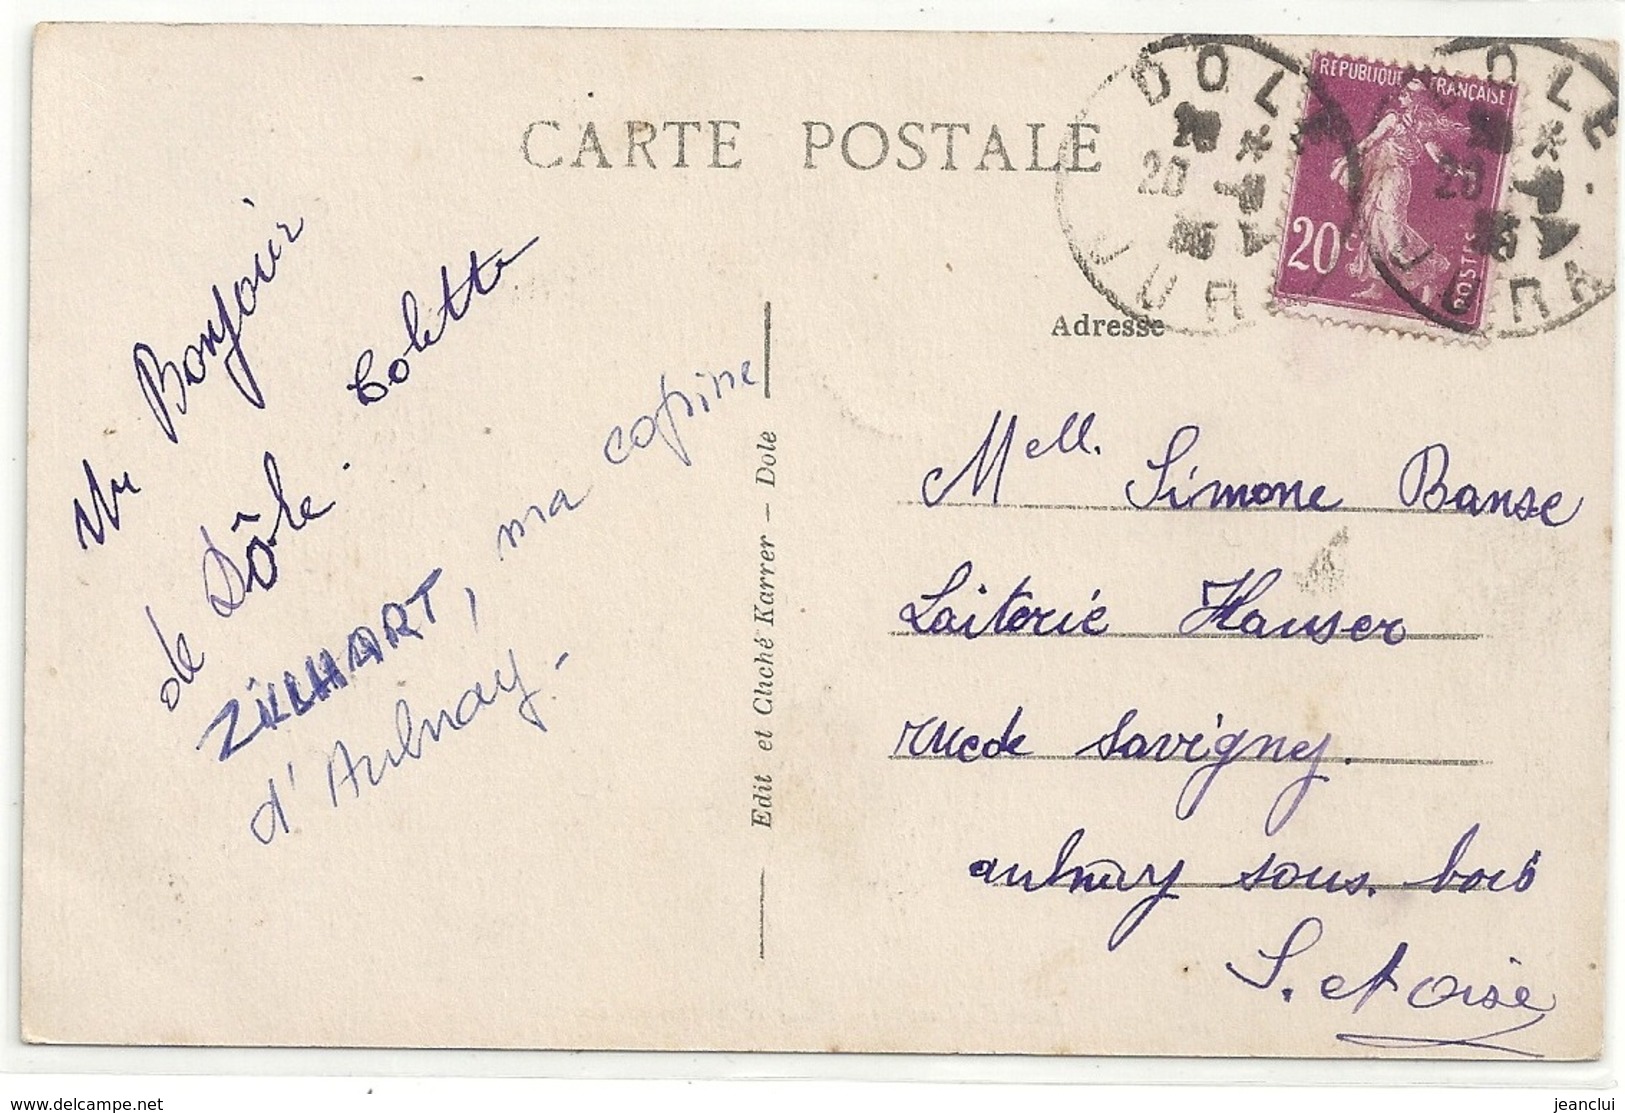 CARTE POSTALE
Un Bonjour
de Dôle. Colette
ZILLHART, ma copine
d'Aulnay -
Edit et Cliché Karrer - Dole
DOLE
20
JURA
REPUBLIQUE FRANÇAISE
20 c
POSTES
DOLE
20
JURA
Adresse
Mell. Simone Banse
Laiterie Hauser
rue de Savigny.
aulnay sous. bois
S. et Oise
www.delcampe.net
jeanclui